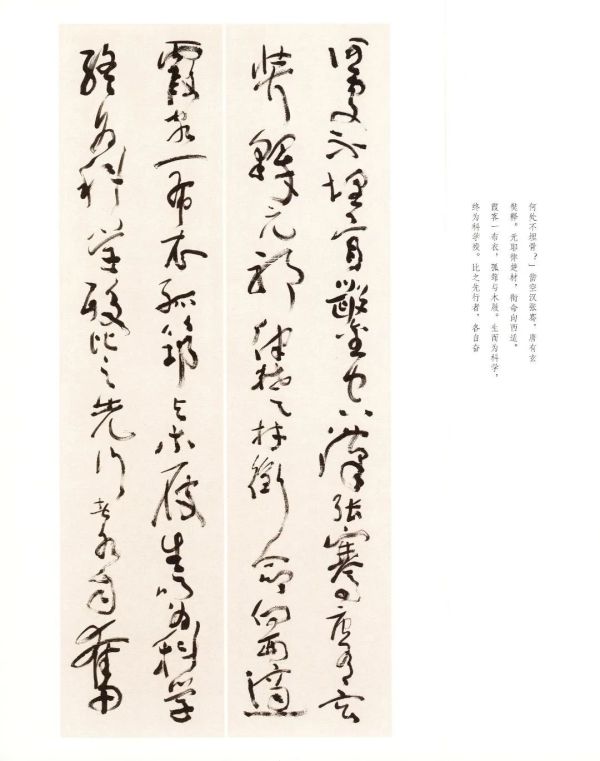 何处不埋骨？」凿空汉张骞，唐有玄
奘释。元耶律楚材，衔命向西适。
霞客一布衣，孤筇与木屐。生而为科学，
终为科学殁。比之先行者，各自奋
何处不埋骨凿空汉张骞唐有玄
奘释元耶律楚材衔命向西适
霞客一布衣孤筇与木屐生而为科学
终为科学殁比之先行者各自奋